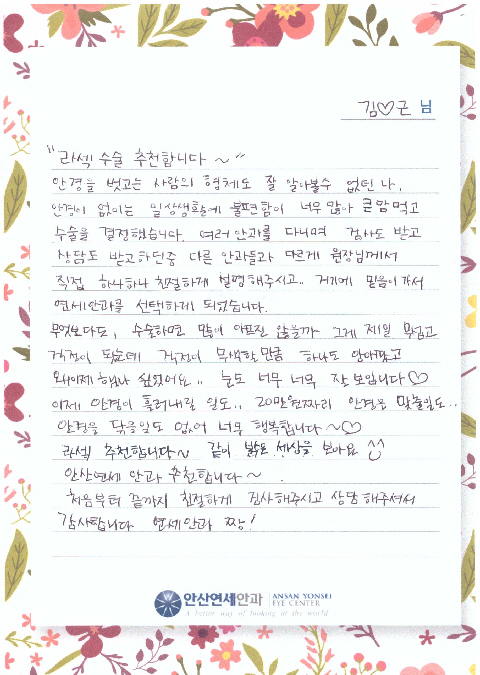 김♡근 님
"라섹 수술 추천합니다 ~"
안경을 벗고는 사람의 형체도 잘 알아볼수 없던 나,
안경이 없이는 일상생활에 불편함이 너무 많아 큰 맘 먹고
수술을 결정했습니다. 여러 안과를 다니며 검사도 받고
상담도 받고 하던중 다른 안과들과 다르게 원장님께서
직접 하나하나 친절하게 설명해주시고.. 거기에 믿음이 가서
연세안과를 선택하게 되었습니다.
무엇보다도, 수술하면 많이 아프진 않을까 그게 제일 무섭고
걱정이 됐는데 걱정이 무색할만큼 하나도 안아팠고
왜이제 했나 싶었어요.. 눈도 너무 너무 잘 보입니다♡
이제 안경이 흘러내릴 일도.. 20만원짜리 안경을 맞출일도..
안경을 닦을일도 없어 너무 행복합니다~♡
라섹 추천합니다~ 같이 밝은 세상을 보아요 ^^
안산연세 안과 추천합니다~.
처음부터 끝까지 친절하게 검사해주시고 상담 해주셔서
감사합니다 연세안과 짱!
안산연세안과 ANSAN YONSEI
EYE CENTER
A better way of looking at the world